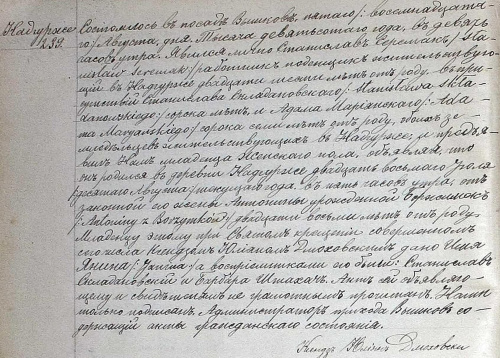 Надгурже
239.
Состоялось въ посадѣ Вышковъ, пятаго /: восемнадцата-
го/ Августа, дня, Тысяча девятьсотаго года, въ девять
часовъ утра. Явился лично Станиславъ Серемакъ /: Sta-
nisław Seremak :/ работникъ поденщикъ жительствую-
щій въ Надгуржѣ двадцати шести лѣтъ отъ роду, въ при-
сутствіи Станислава Складановскаго /: Stanisława Skła-
danowskiego :/ сорока лѣтъ, и Адама Маріанскаго /: Ada-
ma Maryańskiego :/ сорока семи лѣтъ отъ роду, обоихъ зе-
мледѣльцевъ жительствующихъ въ Надгурже, и предъя-
вилъ Намъ младенца женскаго пола, объявляя, что
онъ родился въ деревни Надгурже двадцать восьмаго Іюля
/десятаго Августа/ текущаго года, въ пять часовъ утра, отъ
законной его жены Антонины урожденной Боржинокъ
/: Antoniny z Borzynków :/ двадцати восьми лѣтъ отъ роду.
Младенцу этому при Святомъ крещеніи совершенномъ
сего числа Ксендзомъ Юліаномъ Дмоховскимъ дано имя
Янина /: Janina :/ а воспріемниками его были: Станиславъ
Складановскій и Барбара Штахачъ. Актъ сей объявляю-
щему и свидѣтелямъ не грамотнымъ прочитанъ, Нами
только подписанъ. Администраторъ прихода Вышковъ со-
держащій акты гражданскаго состоянія.
Ксендзъ Юліанъ Дмоховски